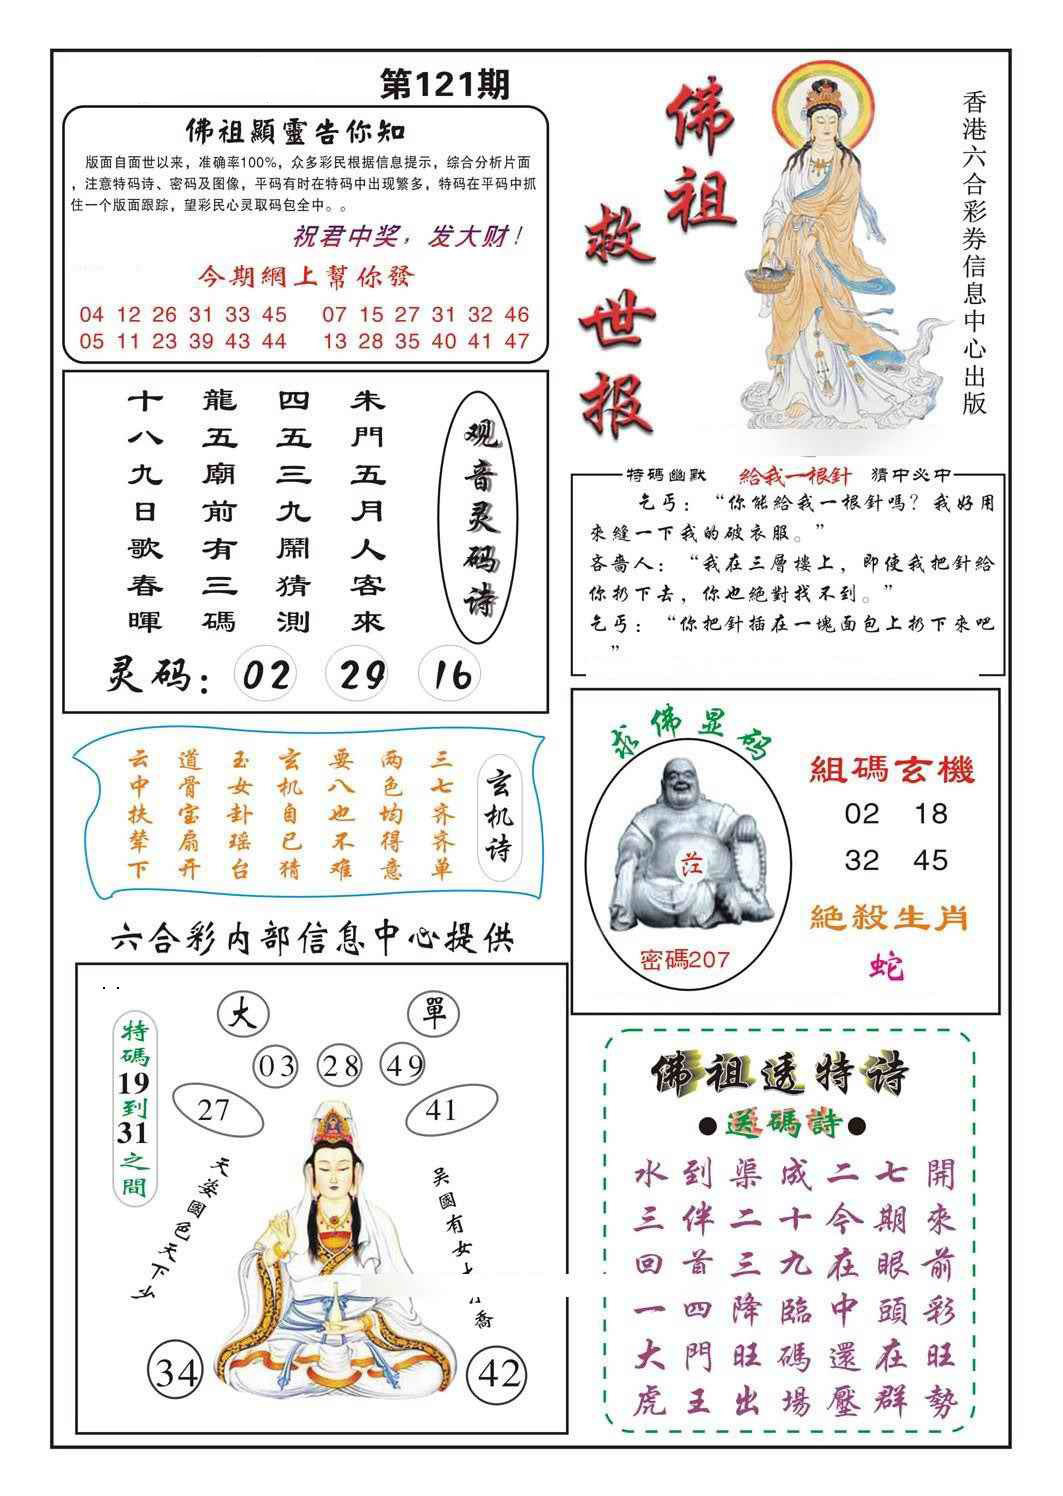 第121期
佛祖顯靈告你知
版面自面世以来，准确率100%，众多彩民根据信息提示，综合分析片面
，注意特码诗、密码及图像，平码有时在特码中出现繁多，特码在平码中抓
住一个版面跟踪，望彩民心灵取码包全中。。
祝君中奖，发大财！
今期網上幫你發
04 12 26 31 33 45 07 15 27 31 32 46
05 11 23 39 43 44 13 28 35 40 41 47
佛祖
救世报
香港六合彩券信息中心出版
观音灵码诗
朱門五月人客來
四五三九鬧猜測
龍五廟前有三碼
十八九日歌春暉
灵码：02 29 16
特碼幽默 給我一根針 猜中必中
乞丐：“你能給我一根針嗎？我好用
來縫一下我的破衣服。”
吝嗇人：“我在三層樓上，即使我把針給
你扔下去，你也絕對找不到。”
乞丐：“你把針插在一塊面包上扔下來吧
”
玄机诗
三七齐齐单
两色均得意
要八也不难
玄机自已猜
玉女卦瑶台
道骨宝扇开
云中扶辇下
求佛显码
密碼207
組碼玄機
02 18
32 45
絕殺生肖
蛇
六合彩内部信息中心提供
特碼19到31之間
大 單
03 28 49
27 41
天姿國色天下少
吴國有女
喬
34 42
佛祖透特诗
●送碼詩●
水到渠成二七開
三伴二十今期來
回首三九在眼前
一四降臨中頭彩
大門旺碼還在旺
虎王出場壓群勢